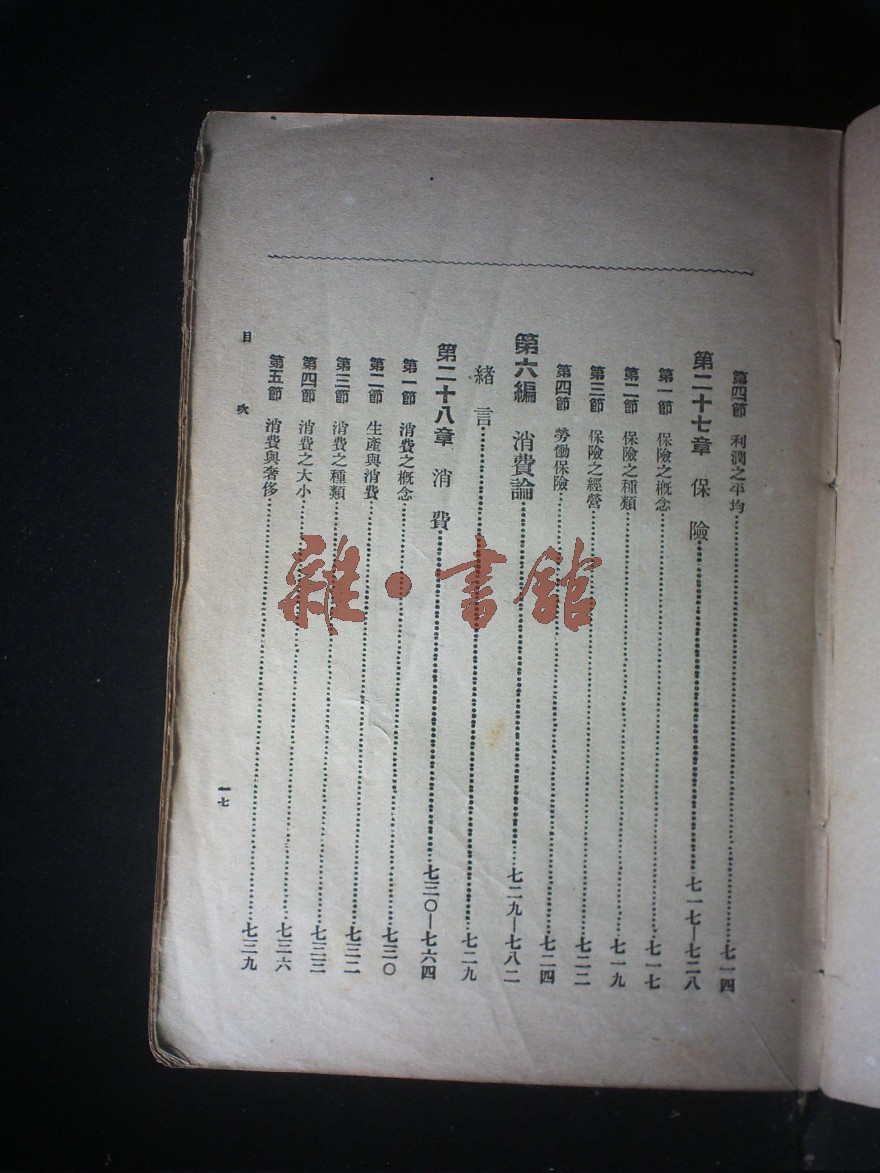 第四節 利潤之平均……七一四
第二十七章 保險……七一七—七二八
第一節 保險之概念……七一七
第二節 保險之種類……七一九
第三節 保險之經營……七二二
第四節 勞働保險……七二四
第六編 消費論……七二九—七八二
緒言……七二九
第二十八章 消費……七三〇—七六四
第一節 消費之概念……七三〇
第二節 生產與消費……七三二
第三節 消費之種類……七三三
第四節 消費之大小……七三六
第五節 消費與奢侈……七三九
目次
一七
雜·書館